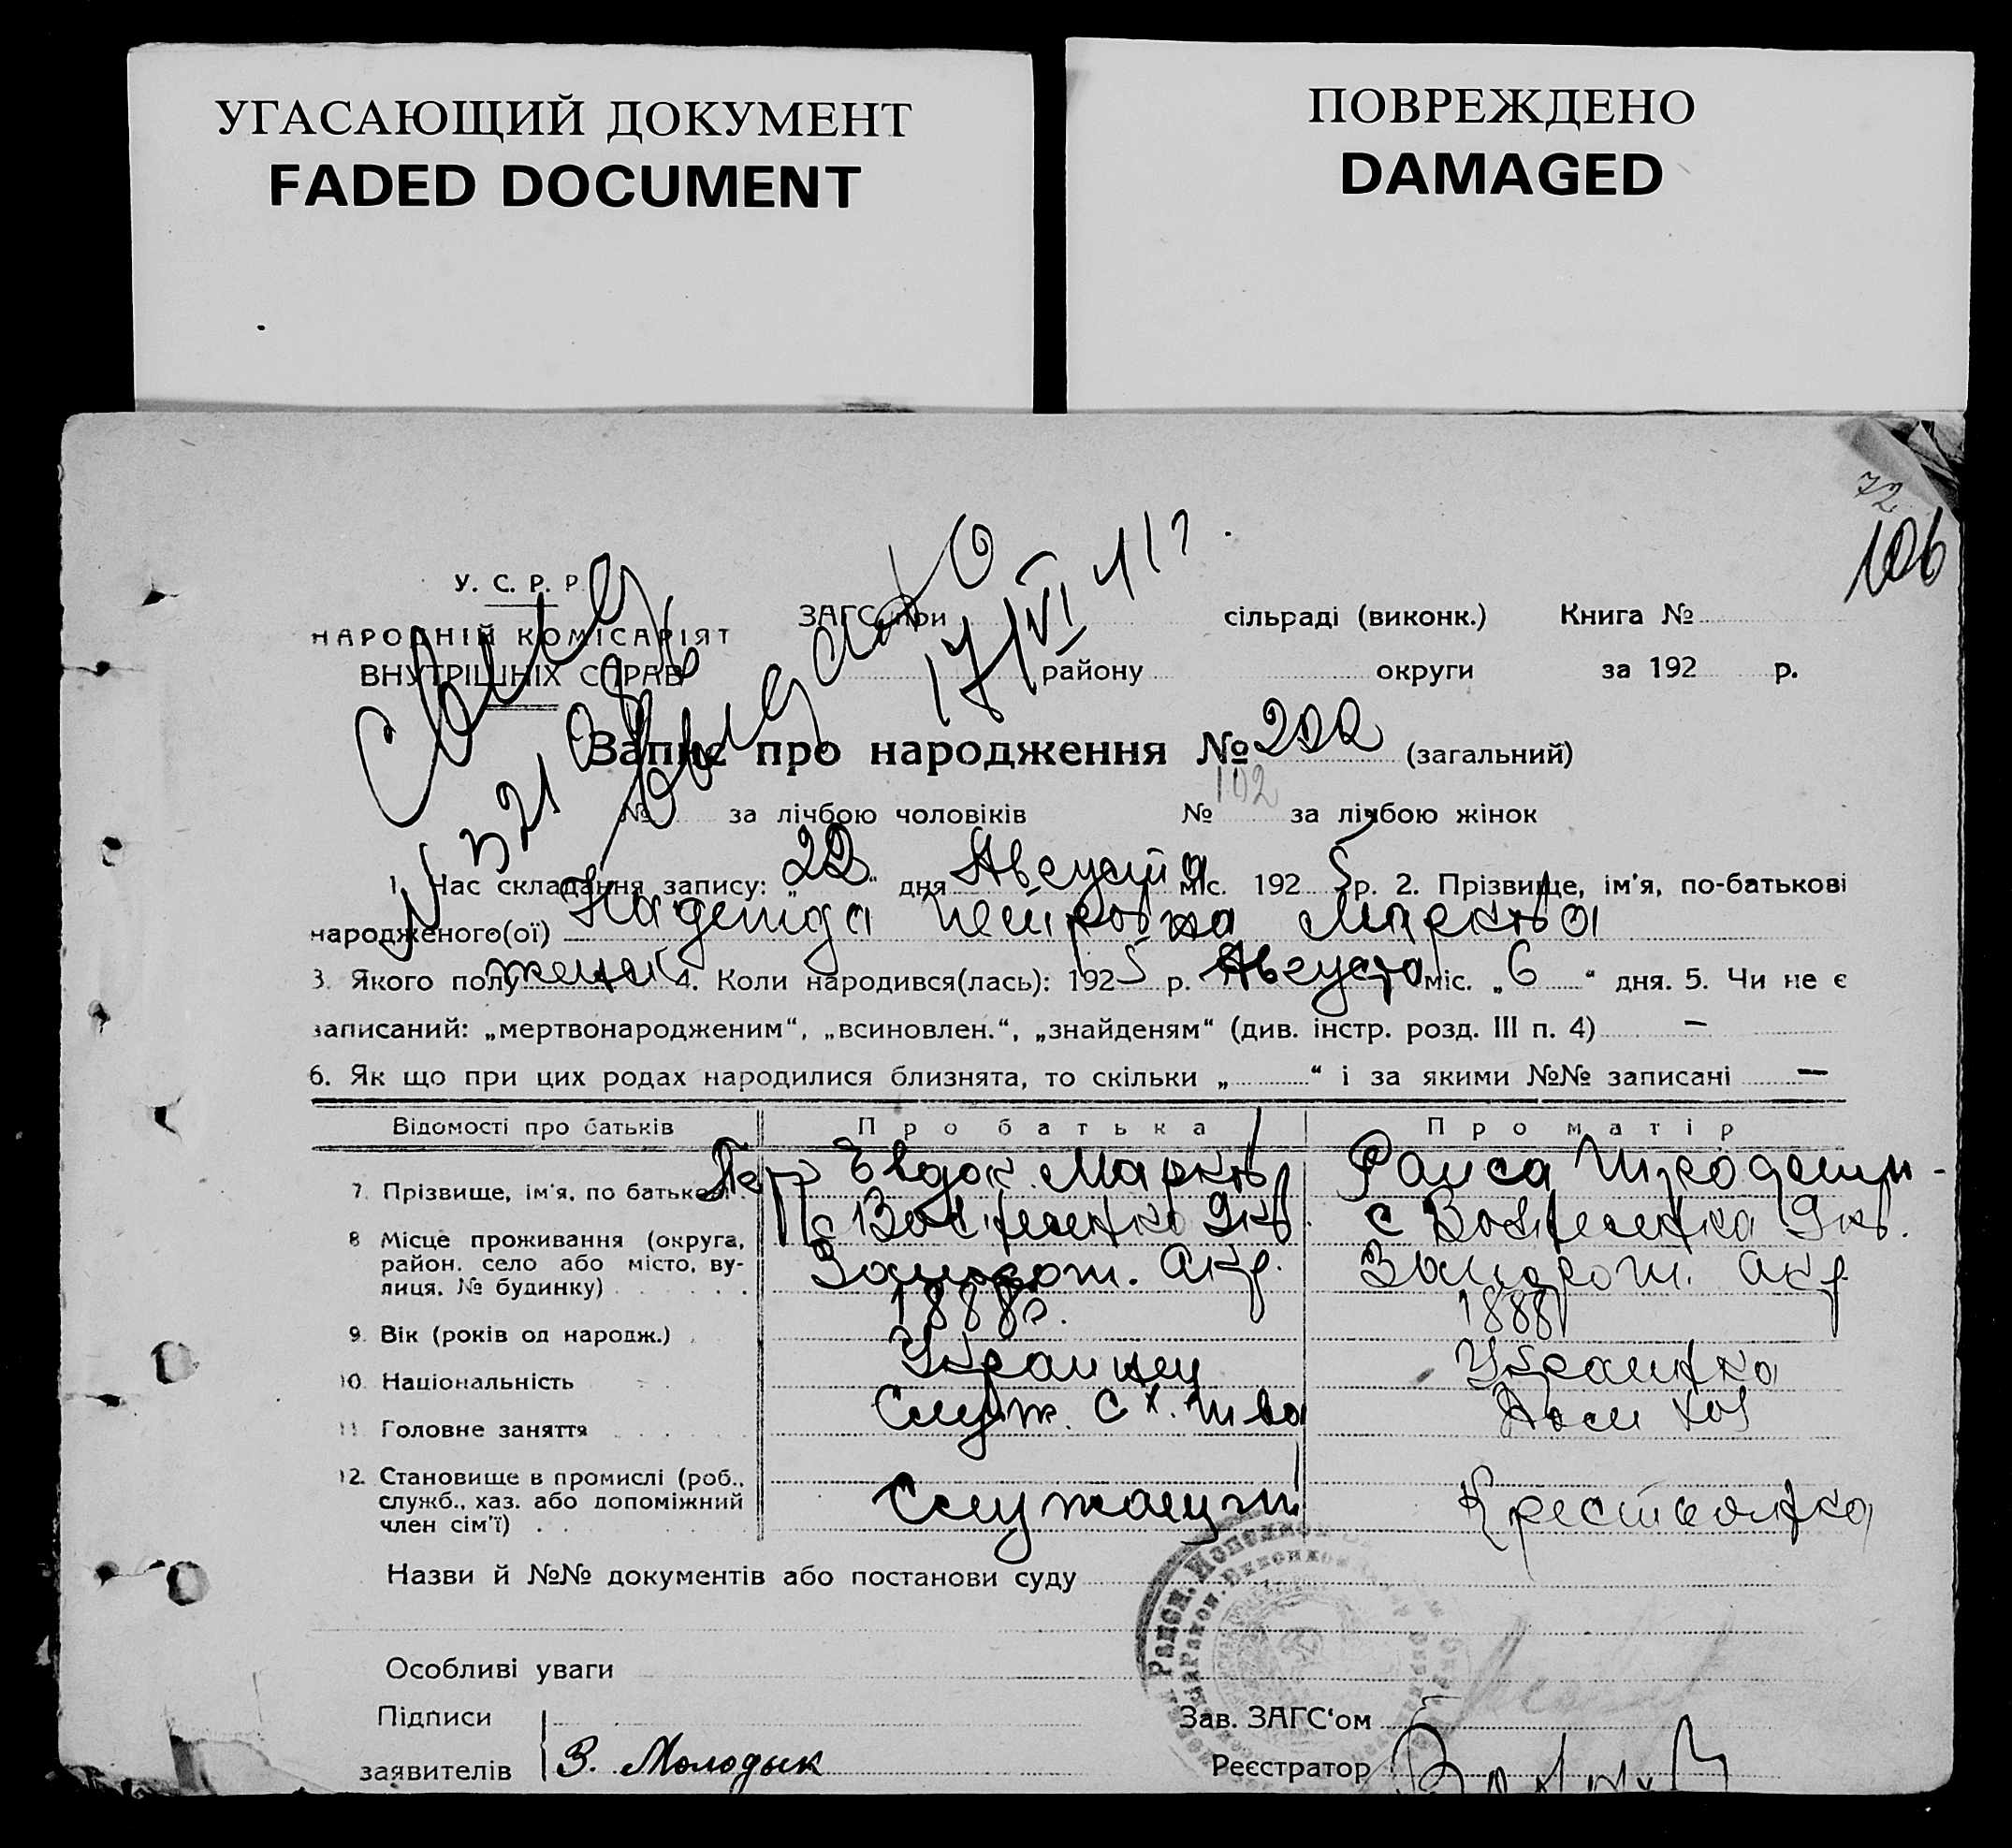 УГАСАЮЩИЙ ДОКУМЕНТ
FADED DOCUMENT
ПОВРЕЖДЕНО
DAMAGED
72
106
У. С. Р. Р.
НАРОДНІЙ КОМІСАРІЯТ
ВНУТРІШНІХ СПРАВ
17/VI
ЗАГС при сільраді (виконк.) Книга №
району округи за 192 р.
Запис про народження № 202 (загальний)
№ за лічбою чоловіків № 102 за лічбою жінок
N 321
1. Час складання запису: „22“ дня Августа міс. 1925 р. 2. Прізвище, ім'я, по-батькові
народженого(ої) Надежда Петровна
3. Якого полу женск 4. Коли народився(лась): 1925 р. Августа міс. „6“ дня. 5. Чи не є
записаний: „мертвонародженим“, „всиновлен.“, „знайденям“ (див. інстр. розд. III п. 4) —
6. Як що при цих родах народилися близнята, то скільки „ “ і за якими №№ записані —
Відомості про батьків Про батька Про матір
7. Прізвище, ім'я, по батькові Петр Евдок. Раиса
8. Місце проживання (округа, район, село або місто, вулиця, № будинку) с Вознесенка с Вознесенка
Запорож. Окр. Запорож. Окр
9. Вік (років од народж.) 1888 г. 1888
10. Національність Украинец Украинка
11. Головне заняття Служ. С.х. т-ва Дом хоз
12. Становище в промислі (роб., служб., хаз. або допоміжний член сім'ї) Служащий Крестьянка
Назви й №№ документів або постанови суду
Особливі уваги
Підписи
заявителів З. Молодык
Зав. ЗАГС'ом
Реєстратор